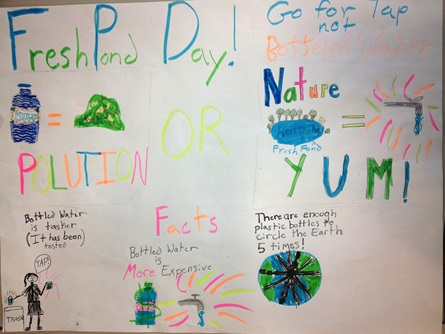 Fresh Pond Day!
Go for Tap
not
Bottled Water
=
POLUTION
OR
Nature
=
Fresh Pond
YUM!
Bottled Water
is tasher
(It has been)
tested
TAP!
TRASH
Facts
Bottled Water
is
More Expensive
There are enough
plastic bottles to
circle the Earth
5 times!